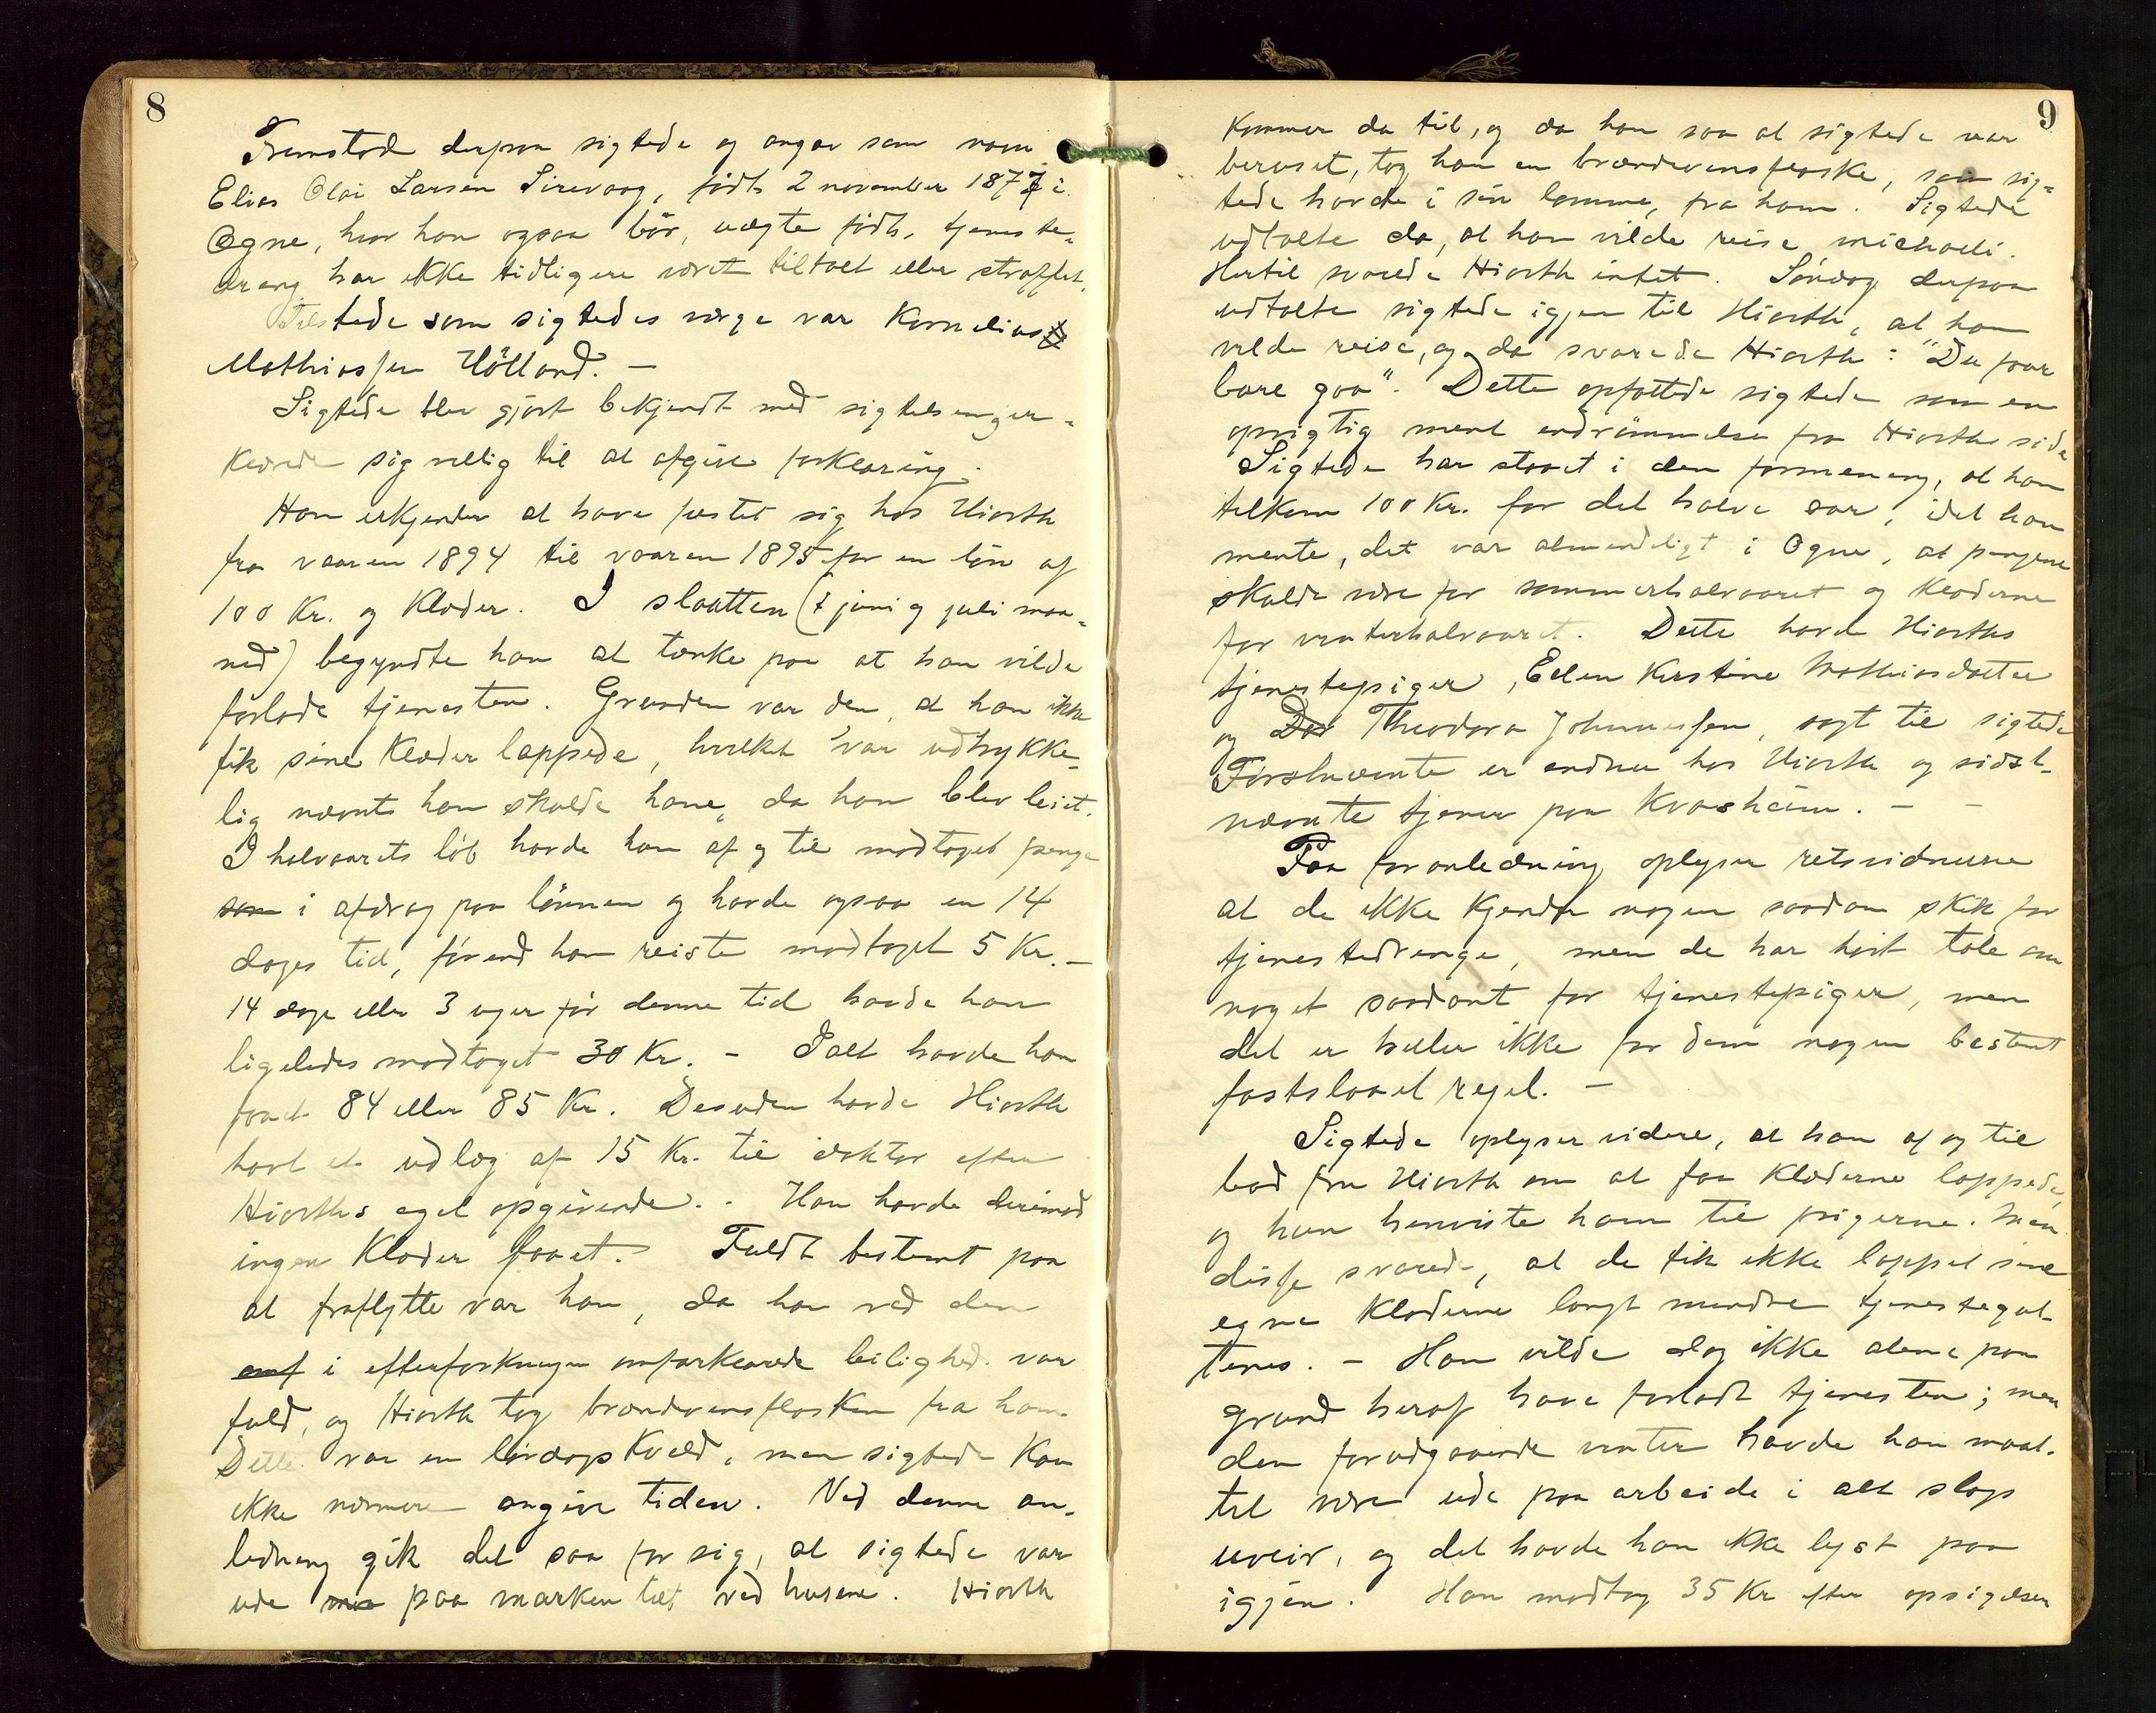 8
Fremstod derpaa sigtede og angav som navn
Elias Olai Larsen Sirevaag, født 2 november 1877 i
Ogne, hvor han ogsaa bor, uægte født, tjeneste-
dreng, har ikke tidligere været tiltalt eller straffet,
Tilstede som sigtedes værge var Kornelius
Mathiassen Hölland. —
Sigtede blev gjort bekjendt med sigtelsen, er-
klærede sig villig til at afgive forklaring.
Han erkjender at have fæstet sig hos Hiorth
fra vaaren 1894 til vaaren 1895 for en løn af
100 Kr. og Klæder. I slaatten (juni og juli maa-
ned) begyndte han at tænke paa at han vilde
forlade tjenesten. Grunden var den, at han ikke
fik sine Klæder lappede, hvilket var udtrykke-
lig nævnt han skulde have, da han blev leiet.
I halvaarets løb havde han af og til modtaget penge
som i afdrag paa lønnen og havde ogsaa en 14
dages tid, førend han reiste modtaget 5 Kr. —
14 dage eller 3 uger før denne tid havde han
ligeledes modtaget 30 Kr. — Ialt havde han
faaet 84 eller 85 Kr. Desuden havde Hiorth
havt et udlæg af 15 Kr. til doktor efter
Hiorths eget opgivende. Han havde derimod
ingen Klæder faaet. Fuldt bestemt paa
at fraflytte var han, da han ved den
omf i efterforskningen omforklarede leilighed var
fuld, og Hiorth tog brændevinsflasken fra ham.
Dette var en lørdags Kvæld, men sigtede Kan
ikke nærmere angive tiden. Ved denne an-
ledning gik det saa for sig, at sigtede var
ude paa marken tæt ved husene. Hiorth
9
Kommer da til, og da han saa at sigtede var
beruset, tog han en brændevinsflaske, som sig-
tede havde i sin lomme, fra ham. Sigtede
udtalte da, at han vilde reise michaeli.
Hertil svarede Hiorth intet. Søndag derpaa
udtalte sigtede igjen til Hiorth, at han
vilde reise, og da svarede Hiorth: "Du faar
bare gaa". Dette opfattede sigtede som en
oprigtig ment indrømmelse fra Hiorths side
Sigtede har staaet i den formening, at han
tilkom 100 Kr. for det halve aar, idet han
mente, det var almindeligt i Ogne, at pengene
skulde være for sommerhalvaaret og klæderne
for vinterhalvaaret. Dette havde Hiorths
tjenestepiger, Ellen Kirstine Mathiasdatter
og Theodora Johannessen, sagt til sigtede
Førstnævnte er endnu hos Hiorth og sidst-
nævnte tjener paa Kvasheim. — —
Paa foranledning oplyser retsvidnerne
at de ikke Kjender nogen saadan skik for
tjenestedrenge, men de har hørt tale om
noget saadant for tjenestepiger, men
det er heller ikke for dem nogen bestemt
fastslaaet regel. —
Sigtede oplyser videre, at han af og til
bad fru Hiorth om at faa Klæderne lappede,
og hun henviste ham til pigerne. Men
disse svarede, at de fik ikke lappet sine
egne Klæderne langt mindre tjenestegut-
tenes. — Han vilde dog ikke alene paa
grund heraf have forladt tjenesten; men
den forudgaaende vinter havde han maat-
tet være ude paa arbeide i alt slags
uveir, og det havde han ikke lyst paa
igjen. Han modtog 35 Kr efter opsigelsen